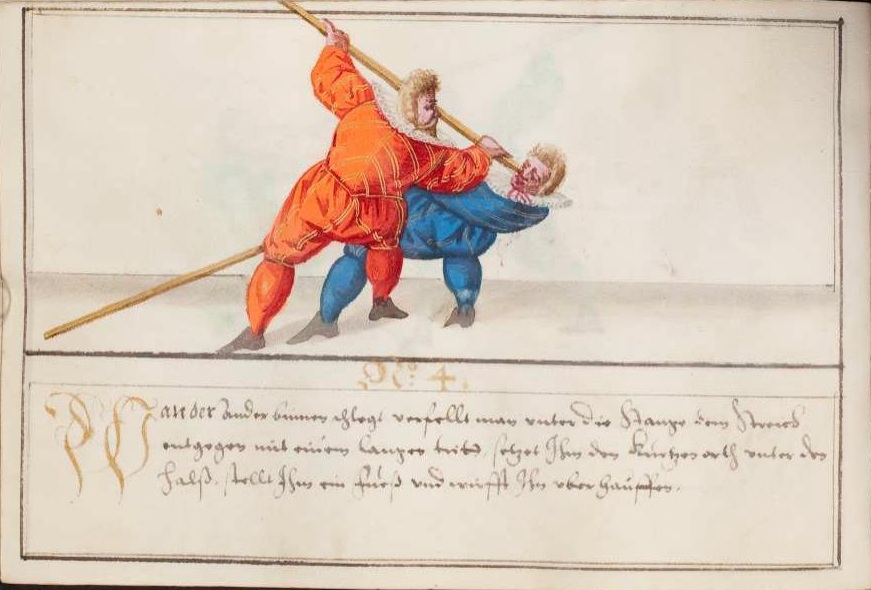 No: 4.
Wan der ander binnen schlegt verfellt man unter die Stange dem Streich
entgegen mit einem langen tritt, setzet Ihm den kurtzen orth unter den
halß, stellt Ihm ein fueß und wirfft Ihn uberhauffen.